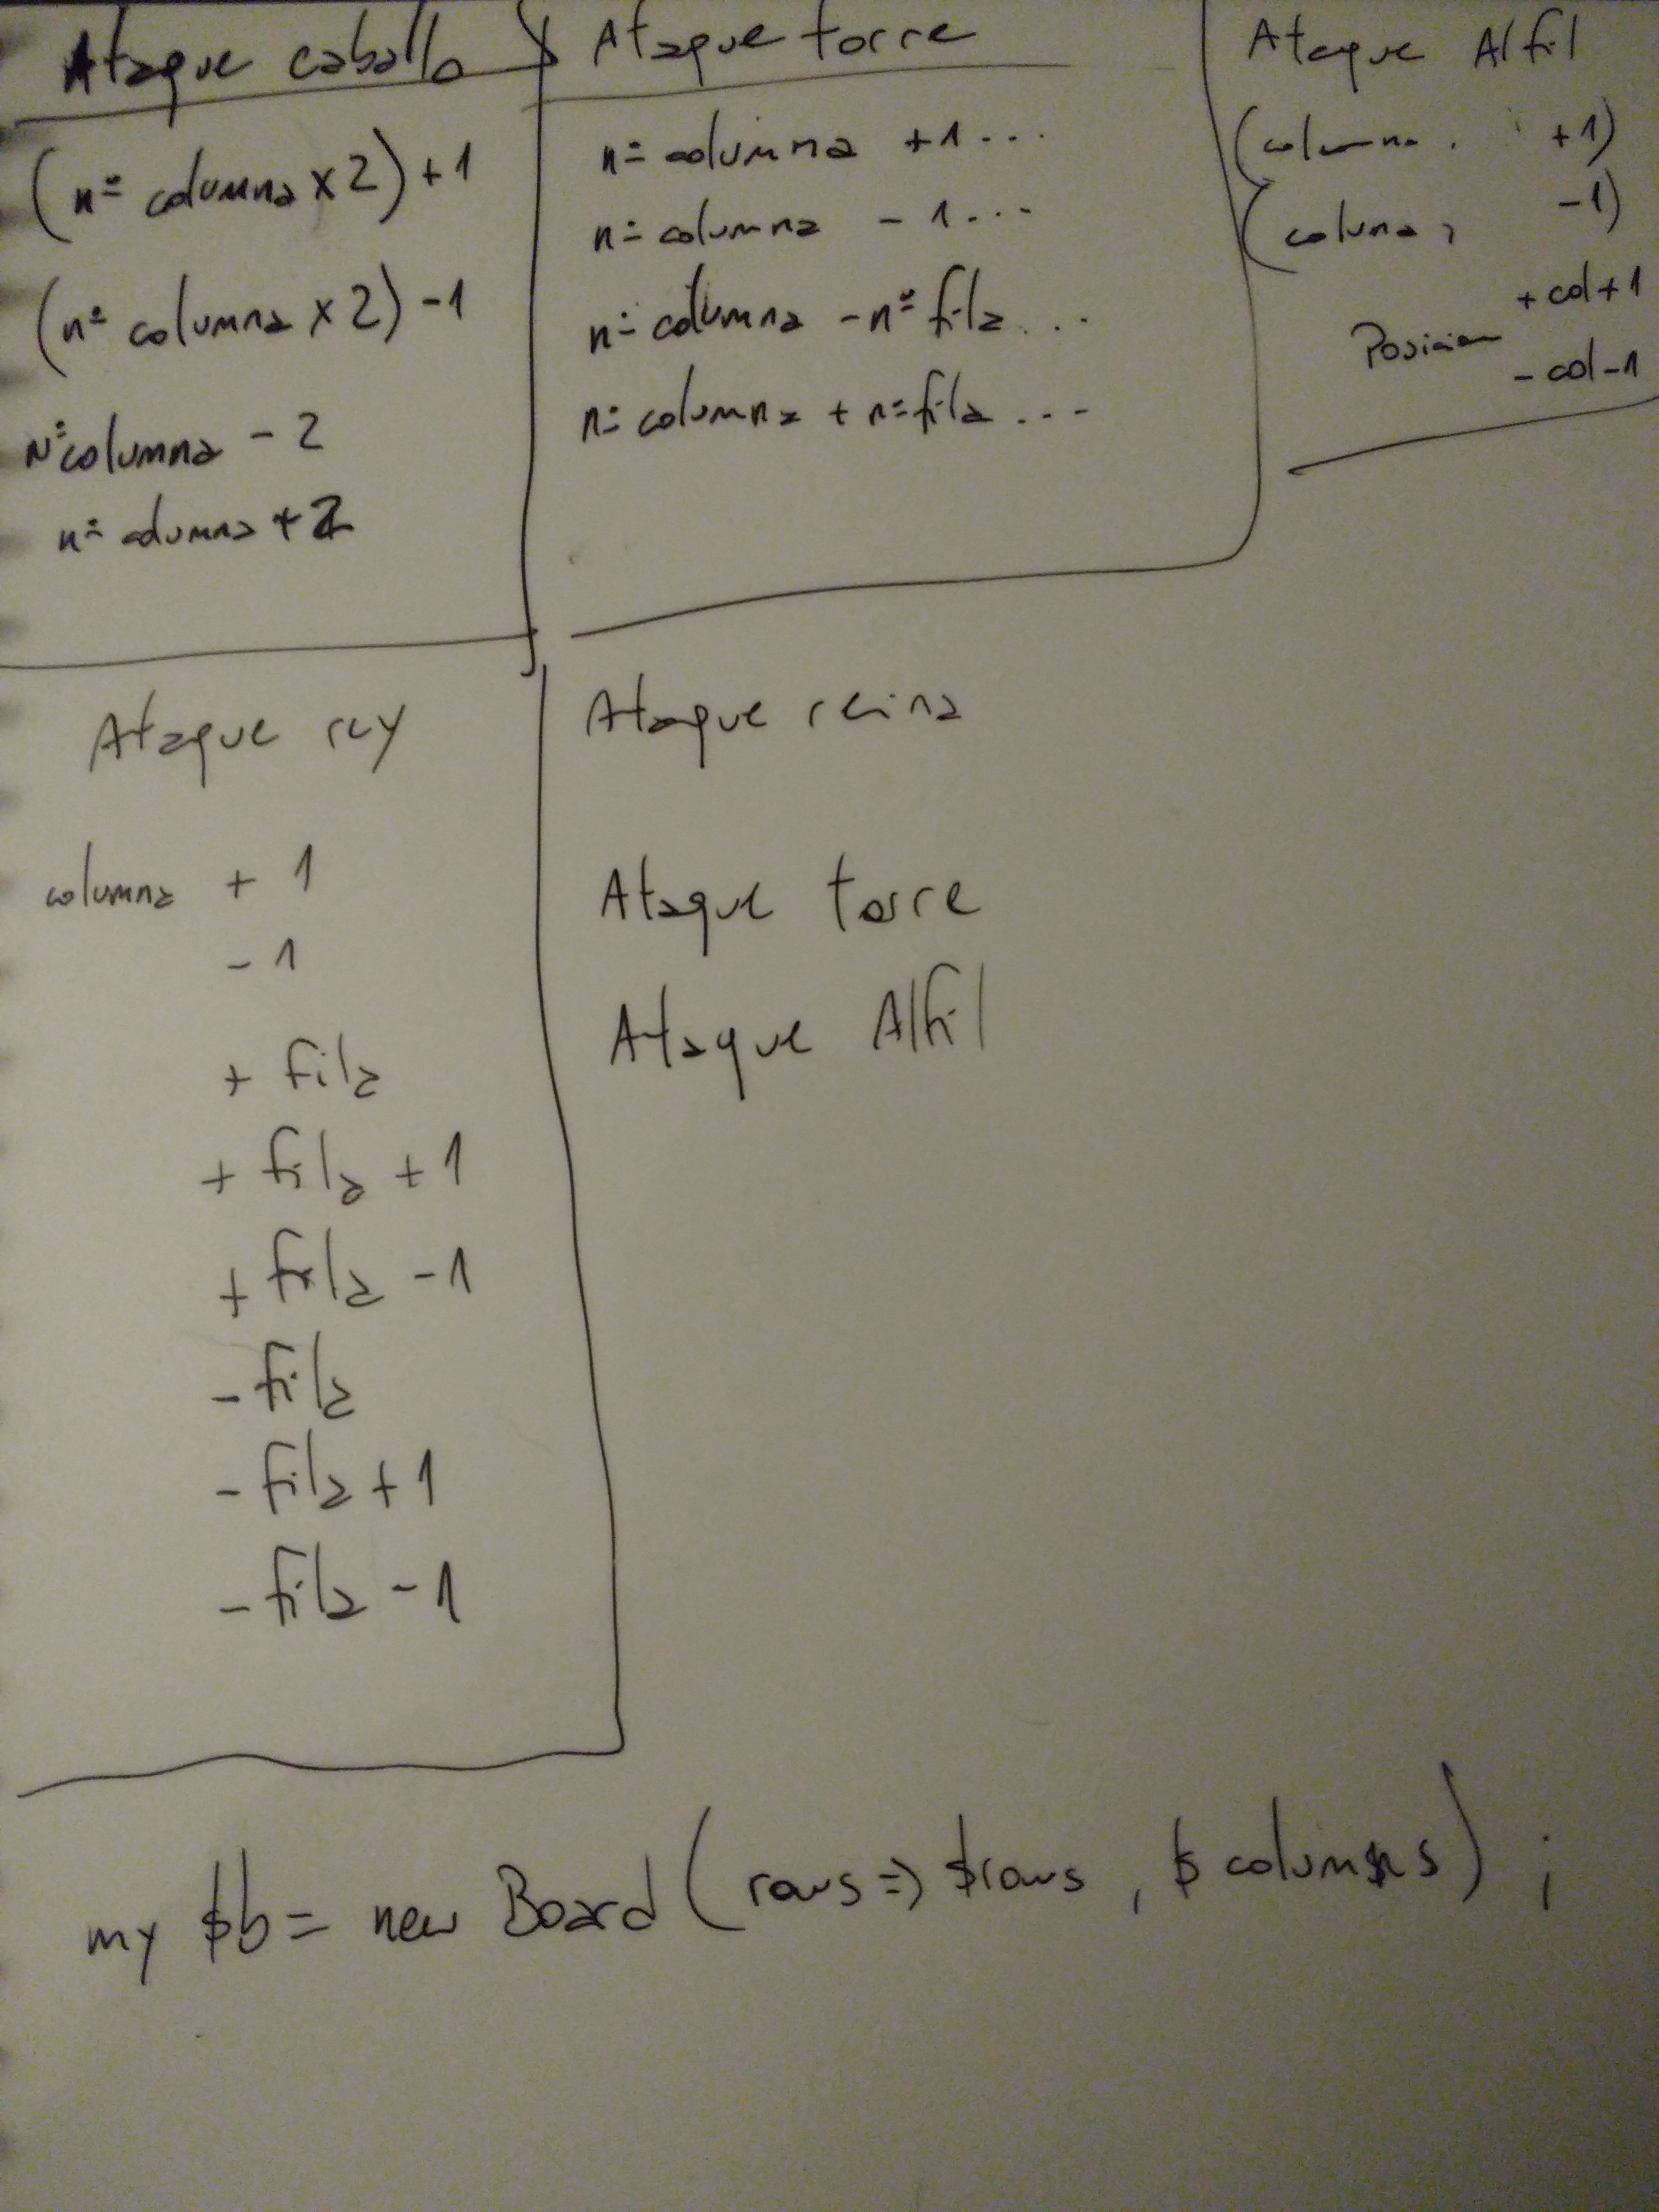 Ataque caballo
(nº columna x 2) + 1
(nº columna x 2) - 1
Nº columna - 2
nº columna + 2
Ataque torre
nº columna + 1 ...
nº columna - 1 ...
nº columna - nº fila ...
nº columna + nº fila ...
Ataque Alfil
(columna, +1)
(coluna, -1)
Posicion + col + 1
- col - 1
Ataque rey
columna + 1
- 1
+ fila
+ fila + 1
+ fila - 1
- fila
- fila + 1
- fila - 1
Ataque reina
Ataque torre
Ataque Alfil
my $b = new Board (rows => $rows, $columns);